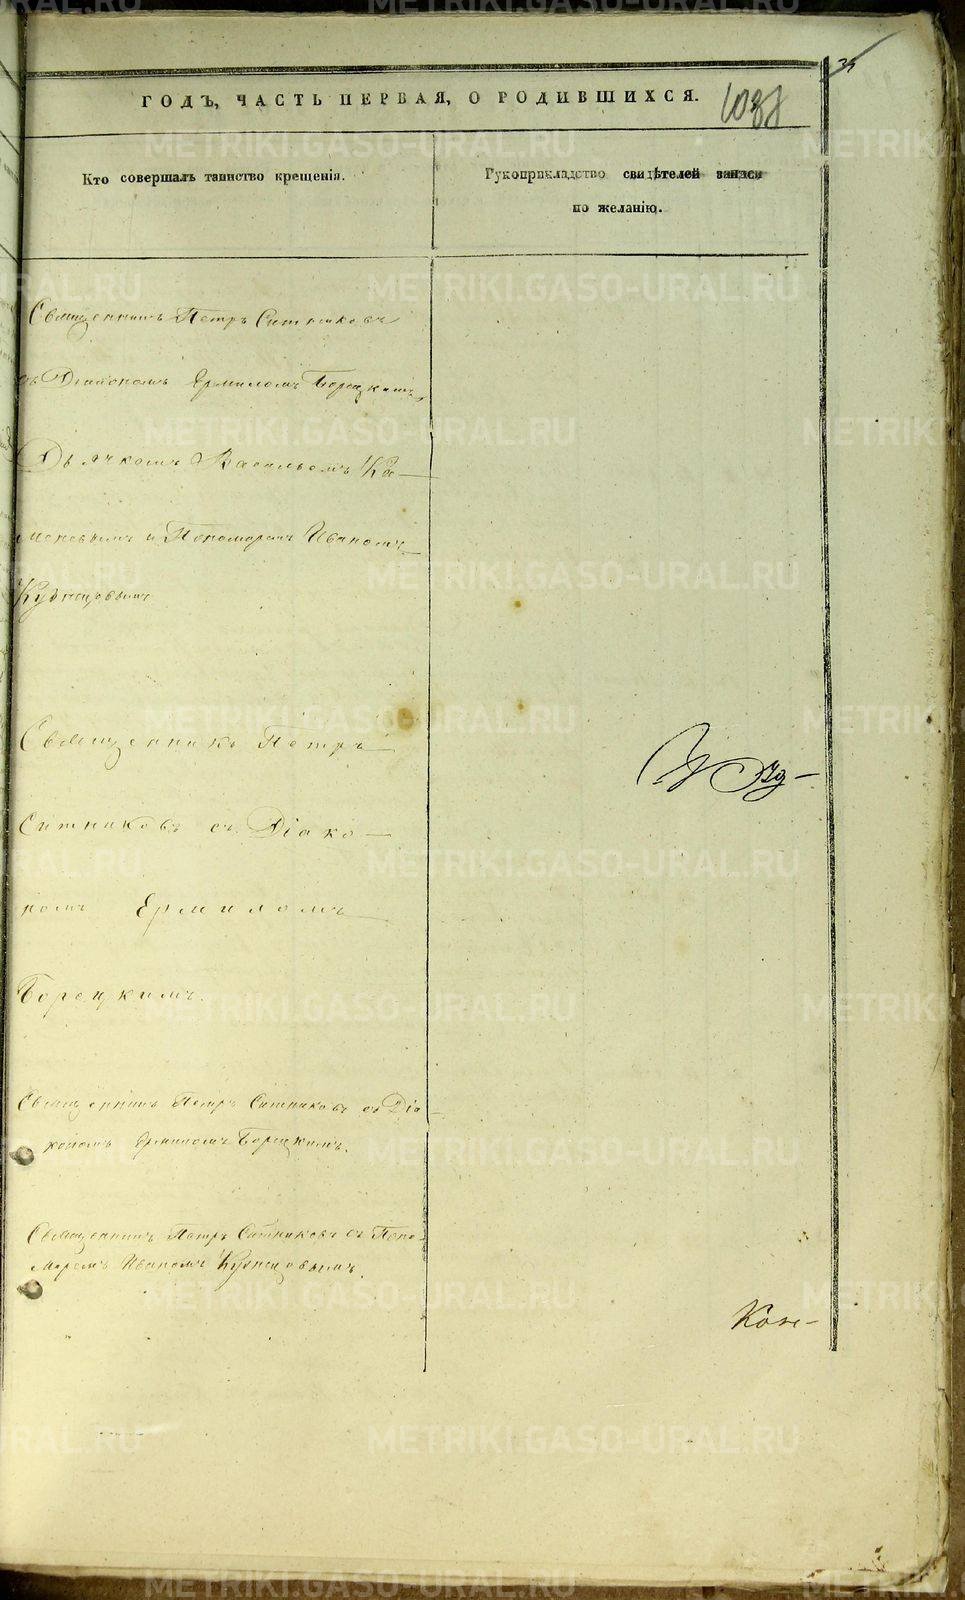 ГОДЪ, ЧАСТЬ ПЕРВАЯ, О РОДИВШИХСЯ.
Кто совершалъ таинство крещенія.
Рукоприкладство свидѣтелей записи
по желанію.
Священникъ Петръ Ситниковъ
съ Діакономъ Ермиломъ Борецкимъ,
Дьячкомъ Васильемъ Ка-
меневымъ и Пономаремъ Иваномъ
Кузнецовымъ
Священникъ Петръ
Ситниковъ съ Діако-
номъ Ермиломъ
Борецкимъ.
Священникъ Петръ Ситниковъ съ Діа-
кономъ Ермиломъ Борецкимъ.
Священникъ Петръ Ситниковъ съ Поно-
маремъ Иваномъ Кузнецовымъ.
METRIKI.GASO-URAL.RU